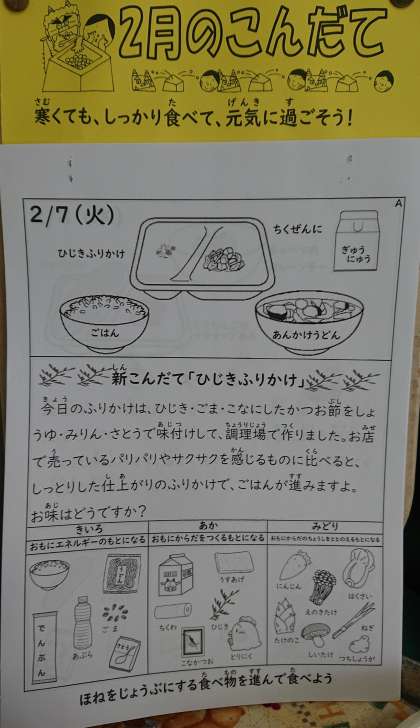 2月のこんだて
寒くても、しっかり食べて、元気に過ごそう!
2/7(火)
A
ひじきふりかけ
ちくぜんに
ぎゅうにゅう
ごはん
あんかけうどん
新こんだて「ひじきふりかけ」
今日のふりかけは、ひじき・ごま・こなにしたかつお節をしょ
うゆ・みりん・さとうで味付けして、調理場で作りました。お店
で売っているパリパリやサクサクを感じるものに比べると、
しっとりした仕上がりのふりかけで、ごはんが進みますよ。
お味はどうですか?
きいろ
おもにエネルギーのもとになる
でんぷん
あぶら
ごま
あか
おもにからだをつくるもとになる
うすあげ
ちくわ
ひじき
こなかつお
とりにく
みどり
おもにからだのちょうしをととのえるもとになる
にんじん
えのきたけ
はくさい
たけのこ
しいたけ
ねぎ
つちしょうが
ほねをじょうぶにする食べ物を進んで食べよう